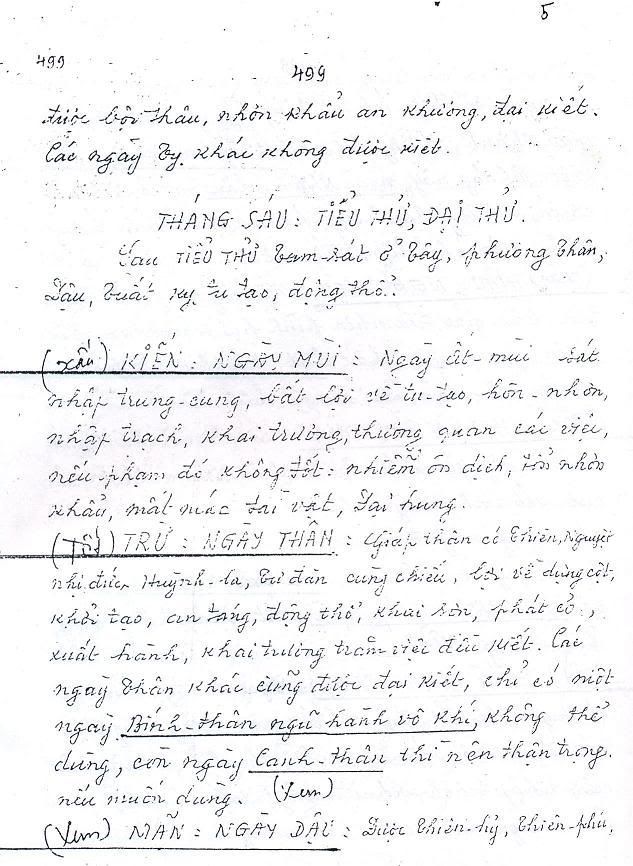 5
499
499
được bội thâu, nhơn khẩu an khương, đại kiết.
Các ngày Tỵ khác không được kiết.
THÁNG SÁU: TIỂU THỬ, ĐẠI THỬ.
Sau TIỂU THỬ tam-sát ở Tây, phương Thân,
Dậu, Tuất kỵ tu tạo, động thổ.
(xấu) KIẾN: NGÀY MÙI: Ngày Ất-mùi sát
nhập trung-cung, bất lợi về tu-tạo, hôn-nhơn,
nhập trạch, khai trương, thượng quan các việc,
nếu phạm đó không tốt: nhiễm ôn dịch, tổn nhơn
khẩu, mất mác tài vật, đại hung.
(Tốt) TRỪ: NGÀY THÂN: Giáp thân có Thiên, Nguyệt
nhị đức, Huỳnh-la, Tử đàn cùng chiếu, lợi về dựng cột,
khởi tạo, an táng, động thổ, khai sơn, phát cỏ,
xuất hành, khai trương trăm việc đều kiết. Các
ngày Thân khác cũng được đại kiết, chỉ có một
ngày Bính-thân ngũ hành vô khí, không thể
dùng, còn ngày Canh-thân thì nên thận trọng.
nếu muốn dùng. (Xem)
(Xem) MÃN: NGÀY DẬU: Được Thiên-hỷ, Thiên-phú,